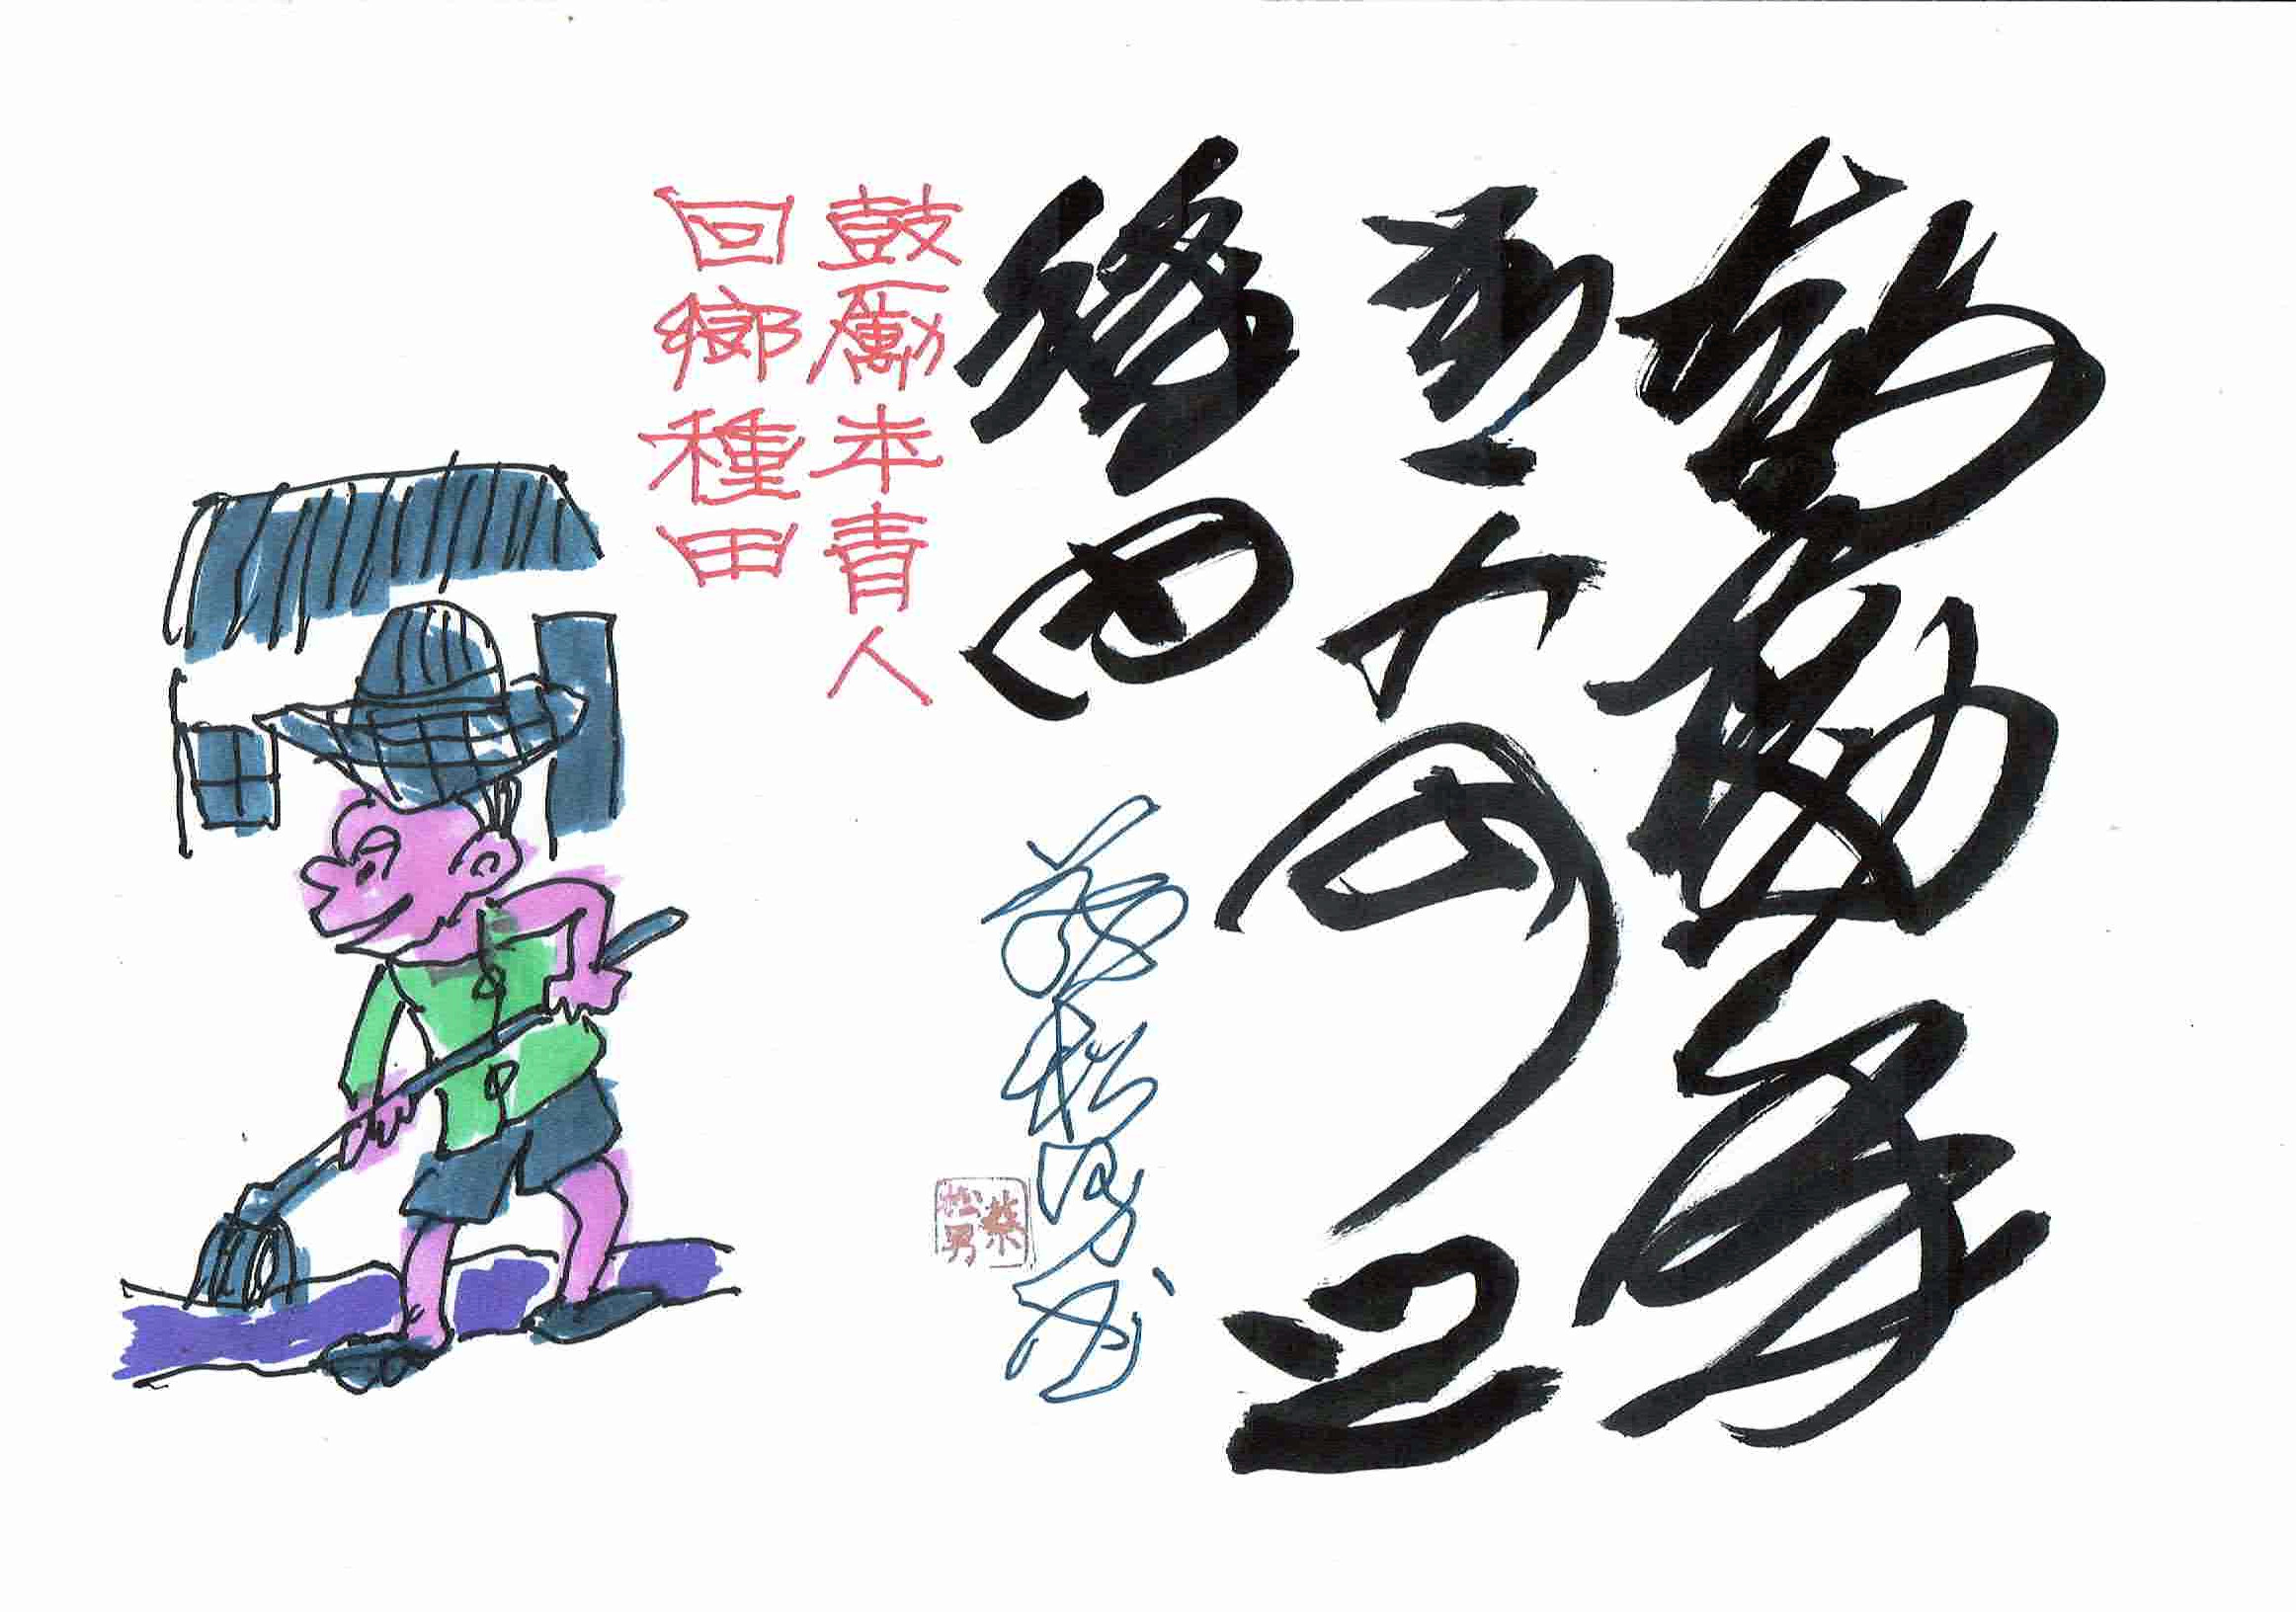 鼓勵年
青人回
種田
鼓厲年青人
回鄉種田
蔡松男書
蔡松男